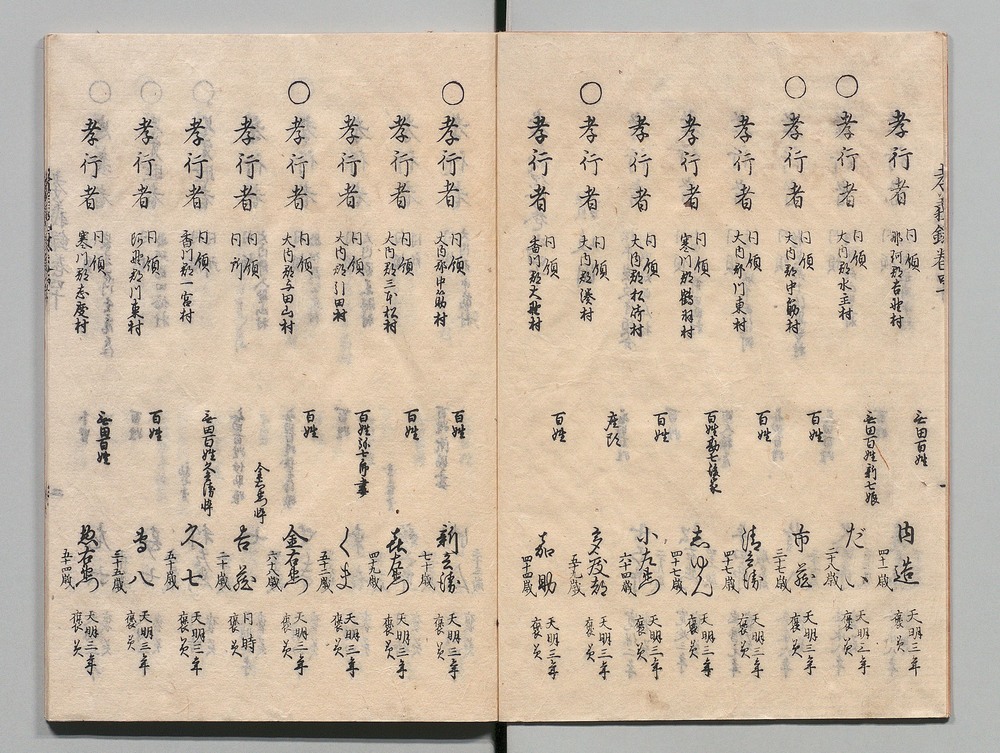 孝義録巻四十
孝行者 同領 那珂郡吉野村 無田百姓 内造 四十一歳 天明三年 褒美
○孝行者 同領 大内郡水主村 無田百姓新七娘 だい 二十八歳 天明三年 褒美
○孝行者 同領 大内郡中筋村 百姓 市蔵 三十七歳 天明三年 褒美
孝行者 同領 大内郡川東村 百姓 清兵衛 四十七歳 天明三年 褒美
孝行者 同領 寒川郡鶴羽村 百姓勘七後家 しゆん 四十七歳 天明三年 褒美
孝行者 同領 大内郡松崎村 百姓 小左衛門 六十四歳 天明三年 褒美
○孝行者 同領 大内郡湊村 座頭 歳 天明三年 褒美
孝行者 同領 香川郡大野村 百姓 嘉助 四十四歳 天明三年 褒美
○孝行者 同領 大内郡中筋村 百姓 新兵衛 七十歳 天明三年 褒美
孝行者 同領 大内郡三本松村 百姓 喜左衛門 四十九歳 天明三年 褒美
孝行者 同領 大内郡引田村 百姓弥七郎妻 くま 五十二歳 天明三年 褒美
○孝行者 同領 大内郡与田山村 百姓 金右衛門 六十八歳 天明三年 褒美
孝行者 同領 同所 金右衛門悴 吉蔵 二十歳 同時 褒美
孝行者 同領 香川郡一宮村 無田百姓久兵衛悴 久七 五十歳 天明三年 褒美
孝行者 同領 阿野郡川東村 百姓 八 三十五歳 天明三年 褒美
孝行者 同領 寒川郡志度村 無田百姓 惣右衛門 五十四歳 天明三年 褒美